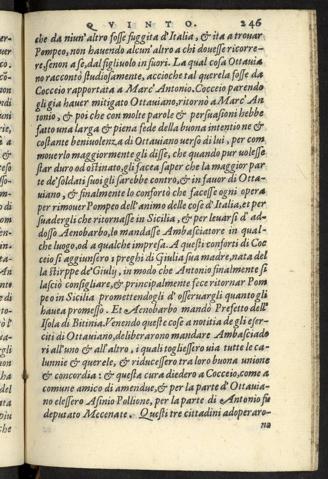 QVINTO. 246
che da niun'altro fosse fuggita d'Italia, & ita a trouar
Pompeo, non hauendo alcun'altro a chi douesse ricorre-
re, senon a se, dal figliuolo in fuori. La qual cosa Ottauia
no raccontò studiosamente, accioche tal querela fosse da
Cocceio rapportata a Marc'Antonio. Cocceio parendo
gli gia hauer mitigato Ottauiano, ritornò a Marc'An
tonio, & poi che con molte parole & persuasioni hebbe
fatto una larga & piena fede della buona intentione &
costante beniuolenza di Ottauiano uerso di lui, per com
mouerlo maggiormente gli disse, che quando pur uolesse
star duro od ostinato, gli facea saper che la maggior par
te de'soldati suoi gli sarebbe contro, & in fauor di Otta-
uiano, & finalmente lo confortò che facesse ogni opera
per rimouer Pompeo dell'animo delle cose d'Italia, et per
suadergli che ritornasse in Sicilia, & per leuarsi d'ad-
dosso Aenobarbo, lo mandasse Ambasciatore in qual-
che luogo, od a qualche impresa. A questi conforti di Coc
ceio si aggiunsero i preghi di Giulia sua madre, nata del
la stirppe de'Giulÿ, in modo che Antonio finalmente si
lasciò consigliare, & principalmente fece ritornar Pom
peo in Sicilia promettendogli d'osseruargli quanto gli
hauea promesso. Et Aenobarbo mandò Prefetto dell'
Isola di Bitinia. Venendo queste cose a notitia de gli eser-
citi di Ottauiano, deliberarono mandare Ambasciado
ri all'uno & all'altro, i quali togliessero uia tutte le ca-
lunnie & querele, & riducessero tra loro buona unione
& concordia: & questa cura diedero a Cocceio, come a
comune amico di amendue, & per la parte d'Ottauia-
no elessero Asinio Pollione, per la parte di Antonio fu
deputato Mecenate. Questi tre cittadini adoperaro-
na